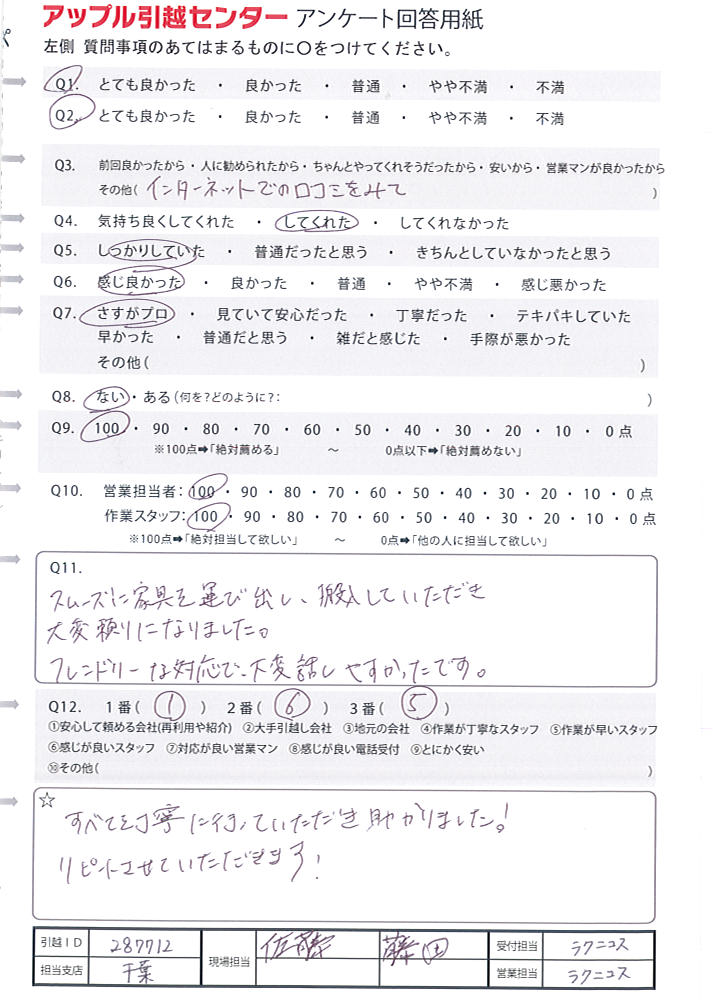 アップル引越センター アンケート回答用紙
左側 質問事項のあてはまるものに〇をつけてください。
Q1. とても良かった ・ 良かった ・ 普通 ・ やや不満 ・ 不満
Q2. とても良かった ・ 良かった ・ 普通 ・ やや不満 ・ 不満
Q3. 前回良かったから・人に勧められたから・ちゃんとやってくれそうだったから・安いから・営業マンが良かったから
その他( インターネットでの口コミをみて )
Q4. 気持ち良くしてくれた ・ してくれた ・ してくれなかった
Q5. しっかりしていた ・ 普通だったと思う ・ きちんとしていなかったと思う
Q6. 感じ良かった ・ 良かった ・ 普通 ・ やや不満 ・ 感じ悪かった
Q7. さすがプロ ・ 見ていて安心だった ・ 丁寧だった ・ テキパキしていた
早かった ・ 普通だと思う ・ 雑だと感じた ・ 手際が悪かった
その他( )
Q8. ない・ある(何を?どのように?: )
Q9. 100 ・ 90 ・ 80 ・ 70 ・ 60 ・ 50 ・ 40 ・ 30 ・ 20 ・ 10 ・ 0 点
※100点➡「絶対薦める」 〜 0点以下➡「絶対薦めない」
Q10. 営業担当者: 100 ・ 90 ・ 80 ・ 70 ・ 60 ・ 50 ・ 40 ・ 30 ・ 20 ・ 10 ・ 0 点
作業スタッフ: 100 ・ 90 ・ 80 ・ 70 ・ 60 ・ 50 ・ 40 ・ 30 ・ 20 ・ 10 ・ 0 点
※100点➡「絶対担当して欲しい」 〜 0点➡「他の人に担当して欲しい」
Q11.
スムーズに家具を運び出し、搬入していただき
大変頼りになりました。
フレンドリーな対応で、大変話しやすかったです。
Q12. 1番( 1 ) 2番( 6 ) 3番( 5 )
①安心して頼める会社(再利用や紹介) ②大手引越し会社 ③地元の会社 ④作業が丁寧なスタッフ ⑤作業が早いスタッフ
⑥感じが良いスタッフ ⑦対応が良い営業マン ⑧感じが良い電話受付 ⑨とにかく安い
⑩その他( )
☆
すべてを丁寧に行っていただき助かりました!
リピートさせていただきます!
引越ID 287712 現場担当 佐藤 藤田 受付担当 ラクニコス
担当支店 千葉 営業担当 ラクニコス